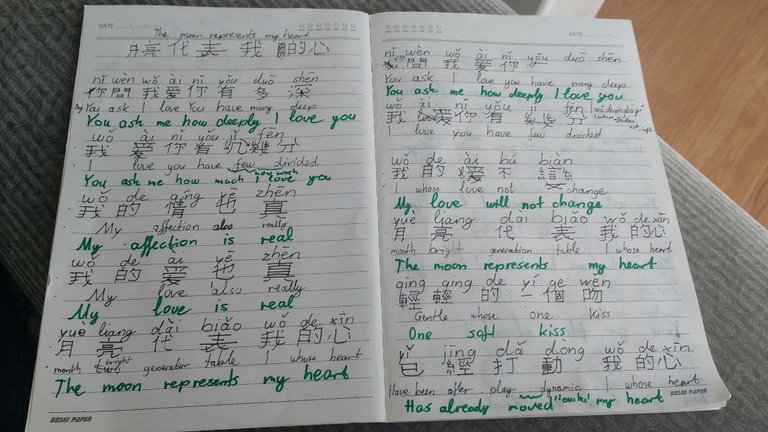 DATE
The moon represents my heart
月亮代表我的心
nǐ wèn wǒ ài nǐ yǒu duō shēn
你問我愛你有多深
You ask I love You have many deep
You ask me how deeply I love you
wǒ ài nǐ yǒu jǐ fēn
我愛你有幾分
I love you have few divided
how much
You ask me how much I love you
wǒ de qíng yě zhēn
我的情也真
My affection also really
My affection is real
wǒ de ài yě zhēn
我的爱也真
My love also really
My love is real
yuè liang dài biǎo wǒ de xīn
月亮代表我的心
month bright generation table I whose heart
The moon represents my heart
BOSHI PAPER
DATE
nǐ wèn wǒ ài nǐ yǒu duō shēn
你問我愛你
You ask I love you have many deep
You ask me how deeply I love you
wǒ ài nǐ yǒu jǐ fēn
我愛你有幾分
I love you have few divided
wǒ de ài bú biàn
我的愛不變
I whose love not change
My love will not change
yuè liang dài biǎo wǒ de xīn
月亮代表我的心
month bright generation table I whose heart
The moon represents my heart
qīng qīng de yí ge wěn
輕輕的一個吻
Gentle whose one kiss
One soft kiss
yǐ jīng dǎ dòng wǒ de xīn
已經打動我的心
Have been after play dynamic I whose heart
Has already moved my heart
BOSHI PAPER